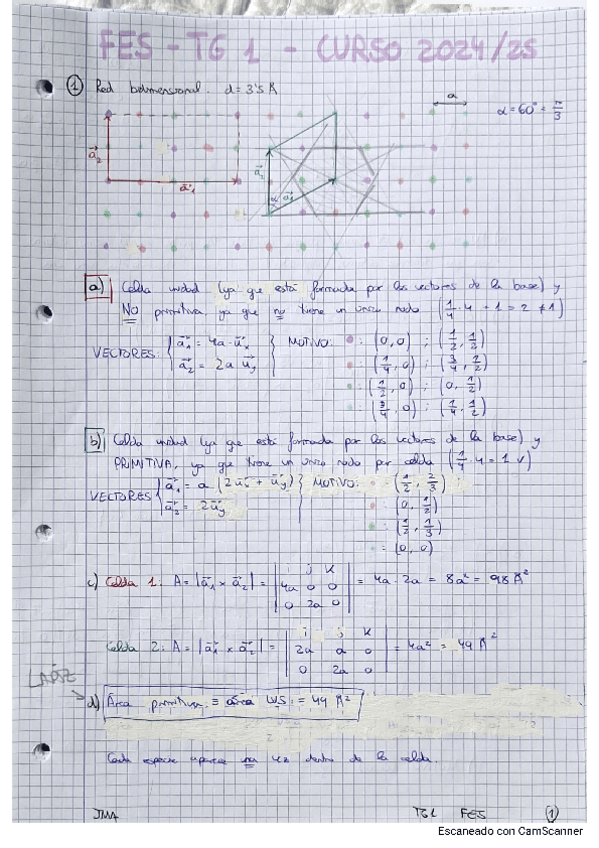 FES - TG 1 - CURSO 2024/25
① Red bidimensional. d = 3'5 Å
a
α = 60° = π/3
a⃗₂
a⃗₁
a⃗₂
α
a⃗₁
a) Celda unidad (ya que está formada por los vectores de la base) y
NO primitiva ya que no tiene un único nodo (1/4 · 4 + 1 = 2 ≠ 1)
VECTORES: { a⃗₁ = 4a · u⃗ₓ MOTIVO: • : (0,0) ; (1/2, 1/2)
a⃗₂ = 2a u⃗y • : (1/4, 0) ; (3/4, 1/2)
• : (1/2, 0) ; (0, 1/2)
• : (3/4, 0) ; (1/4, 1/2)
b) Celda unidad (ya que está formada por los vectores de la base) y
PRIMITIVA, ya que tiene un único nodo por celda (1/4 · 4 = 1 √)
VECTORES { a⃗₁ = a · (2u⃗ₓ + u⃗y) } MOTIVO: • : (1/2, 2/3)
a⃗₂ = 2u⃗y • : (0, 1/2)
• : (1/2, 1/3)
• : (0, 0)
c) Celda 1: A = |a⃗₁ × a⃗₂| = | i j k | = 4a · 2a = 8a² = 98 Å²
4a 0 0
0 2a 0
Celda 2: A = |a⃗₁ × a⃗₂| = | i j k | = 4a² = 49 Å²
2a a 0
0 2a 0
LAPIZ
d) Área primitiva ≡ área WS = 49 Å²
Cada especie aparece una vez dentro de la celda.
JMA TG1 FES ①
Escaneado con CamScanner